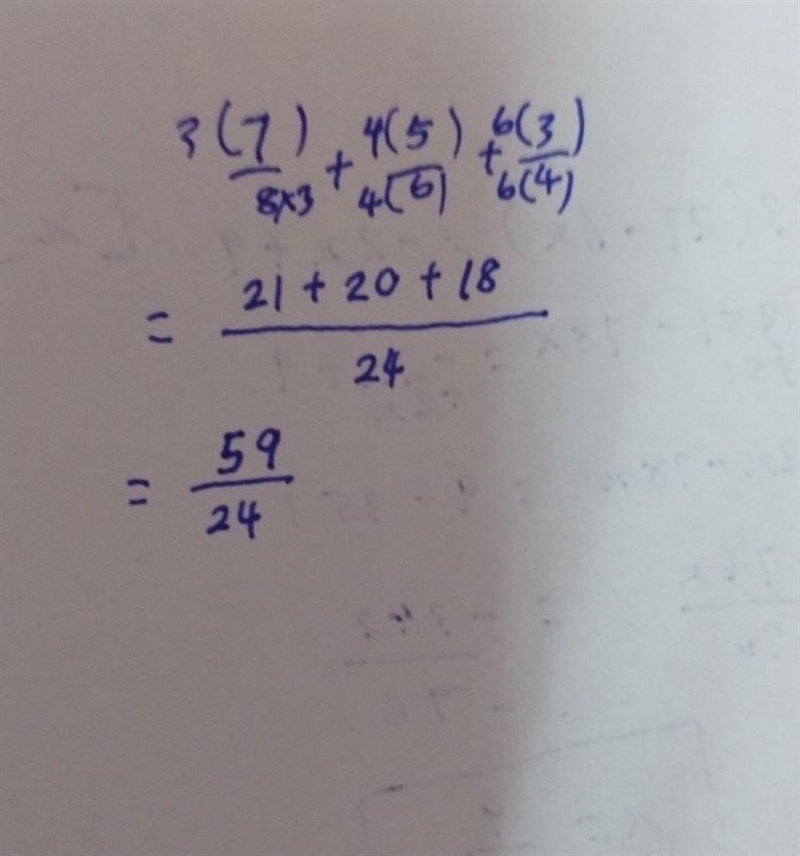 3(7)/8x3 + 4(5)/4(6) + 6(3)/6(4)
= 21 + 20 + 18/24
= 59/24